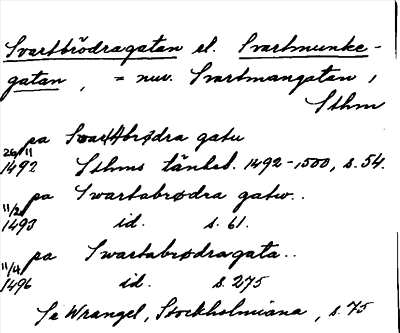 Svartbrödragatan el. Svartmunke-
gatan, = nuv. Svartmangatan,
Sthm
pa Swarttbrødra gatu
26/11
1492 Sthms tänkeb. 1492-1500, s. 54.
pa Swartabrødra gatw..
11/2
1493 id. s. 61.
pa Swartabrødragata..
11/4
1496 id. s. 275
Se Wrangel, Stockholmiana, s. 75